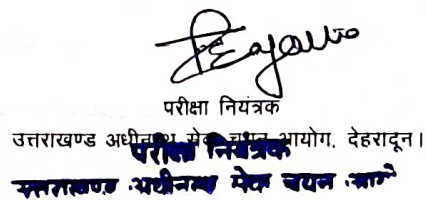 परीक्षा नियंत्रक
उत्तराखण्ड अधीनस्थ सेवा चयन आयोग, देहरादून।
परीक्षा नियंत्रक
उत्तराखण्ड अधीनस्थ सेवा चयन